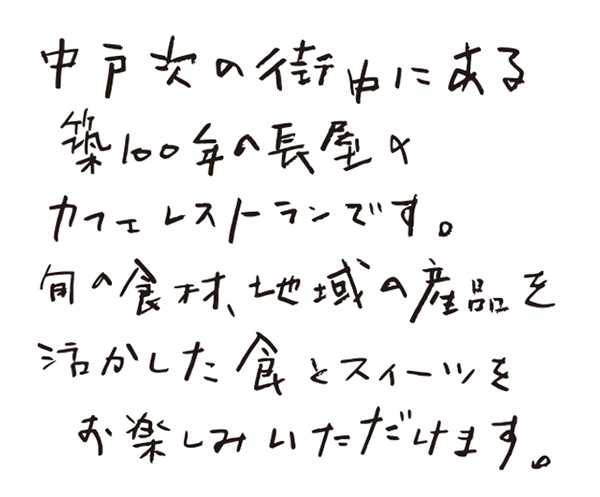 中戸次の街中にある
築100年の長屋の
カフェレストランです。
旬の食材、地域の産品を
活かした食とスイーツを
お楽しみいただけます。